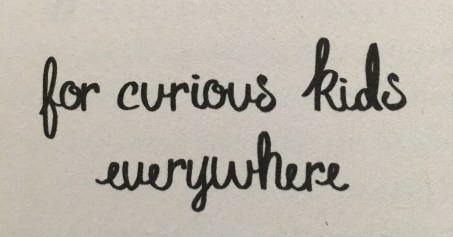 for curious kids
everywhere